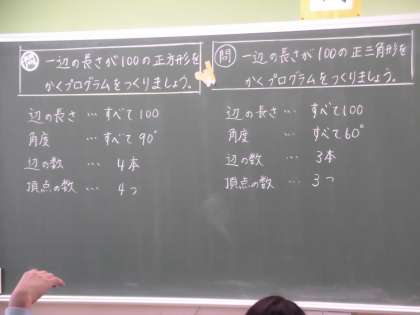 問 一辺の長さが100の正方形を
かくプログラムをつくりましょう。
辺の長さ … すべて100
角度 … すべて90°
辺の数 … 4本
頂点の数 … 4つ
問 一辺の長さが100の正三角形を
かくプログラムをつくりましょう。
辺の長さ … すべて100
角度 … すべて60°
辺の数 … 3本
頂点の数 … 3つ